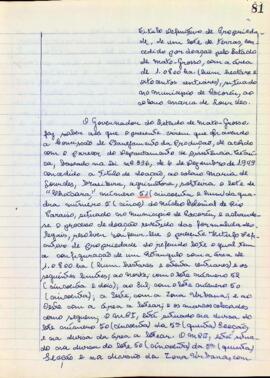 81
Titulo Definitivo de Proprieda-
de, de um lote de terras, con-
cedido por doação pelo Estado
de Mato-Grosso, com a área
de 1.800 ha (hum hectare e
oitocentos centiares), situado
no municipio de Poconé, ao
colono maria de Lourdes.
O Governador do Estado de Mato-Grosso,
faz saber aos que o presente virem que aprovando
a Comissão de Planejamento da Produção, de acôrdo
com o parecer do Departamento de
baseado na Lei nº 336, de 6 de Dezembro de 1949
concedido a Titulo de doação, ao colono Maria de
Lourdes, brasileira, agricultora, solteira, o lote de
numero 51 (cincoenta e hum) da qua-
dra numero 5 (cinco) do Núcleo Colonial de Rio
situado no municipio de Poconé, e achando-
se o processo de doação revestido das formalidades
legais, resolveu passar-lhe o presente titulo defi-
nitivo de propriedade do referido lote o qual tem
a configuração de um retangulo com a área de
1.800 ha (hum hectare e oitocentos centiares) e os
seguintes limites; ao Norte, com o lote número 52
(cincoenta e dois), ao Sul, com o lote número 50
(cincoenta), a Leste, com a Zona Urbana, e ao
Oeste com a área a lotear; e os marcos colocados
como seguem, O mº I, está situado na divisa do
lote número 50 (cincoenta) da 5ª (quinta) Secção
e na divisa da área a lotear. O mº II, está si-
tuado na divisa do lote 50 (cincoenta) da 5ª (quinta)
Secção e na divisa da Zona Urbana, com